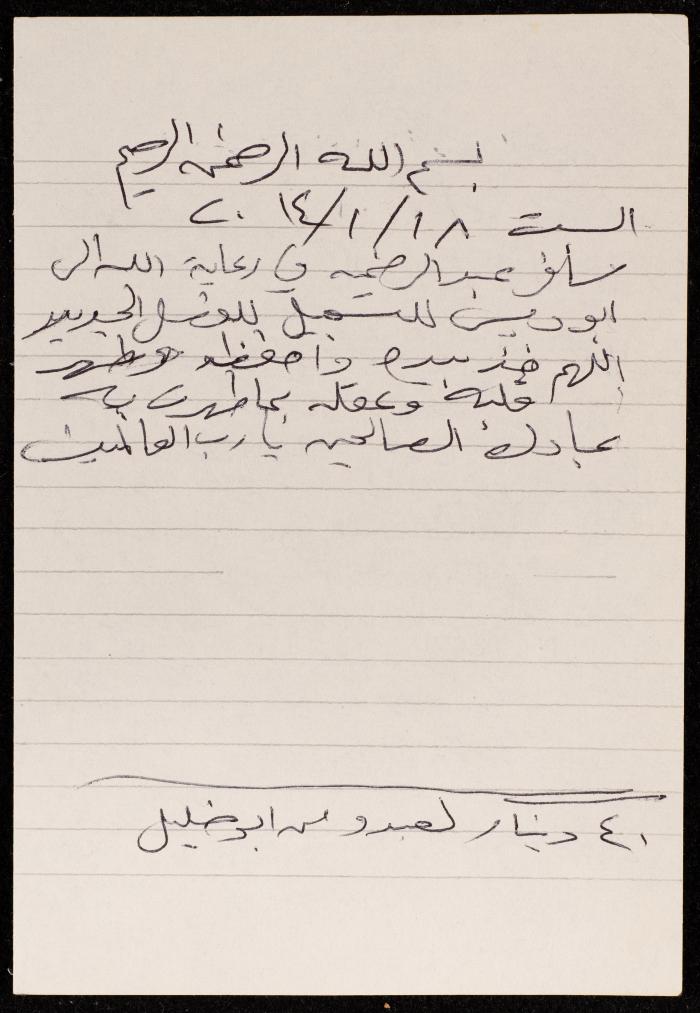 بسم الله الرحمن الرحيم
السبت ١٨/١/٢٠١٤
سافر عبد الرحمن في رعاية الله الى
ابو ديس للتسجيل للفصل الجديد
اللهم خذ بيده واحفظه وطهر
قلبه وعقله بما طهرت به
عبادك الصالحين يا رب العالمين
٤٠ دينار لعبدو من ابو خليل